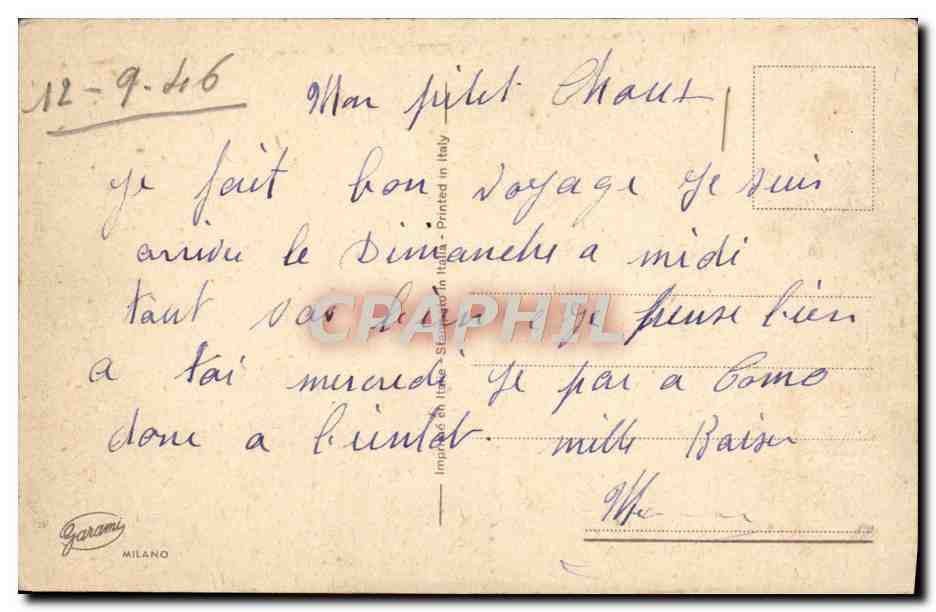 12-9-46
Mon ptit Chous
Je fait bon voyage Je suis
arrive le Dimanche a midi
tout vas bien Je pense bien
a toi mercredi Je par a Como
donc a bientot. mille Baiser
Imprimé en Italie - Stampato in Italia - Printed in Italy
CPAPHIL
Garami
MILANO